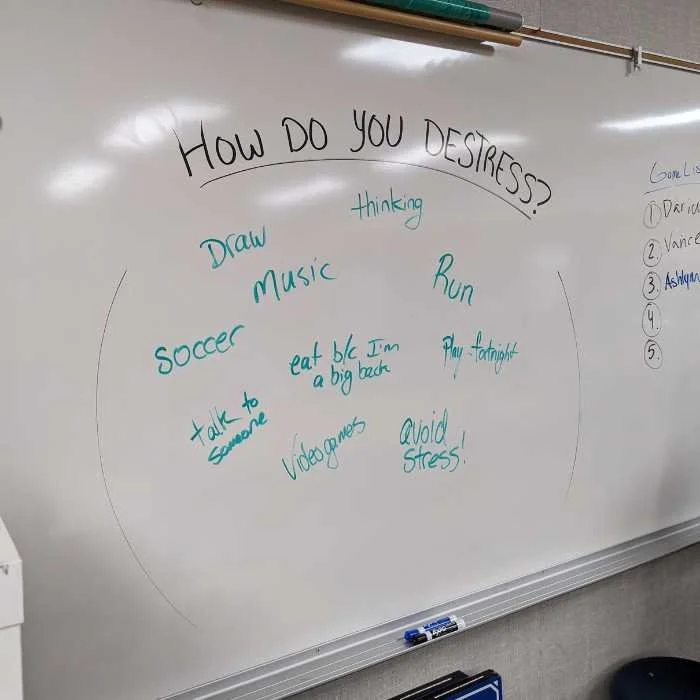 HOW DO YOU DESTRESS?
thinking
Draw
Music
Run
soccer
eat b/c I'm
a big back
Play fortnight
talk to
someone
Videogames
avoid
stress!
Game Lis
1
2. Vance
3. Ashlynn
4.
5.
EXPO